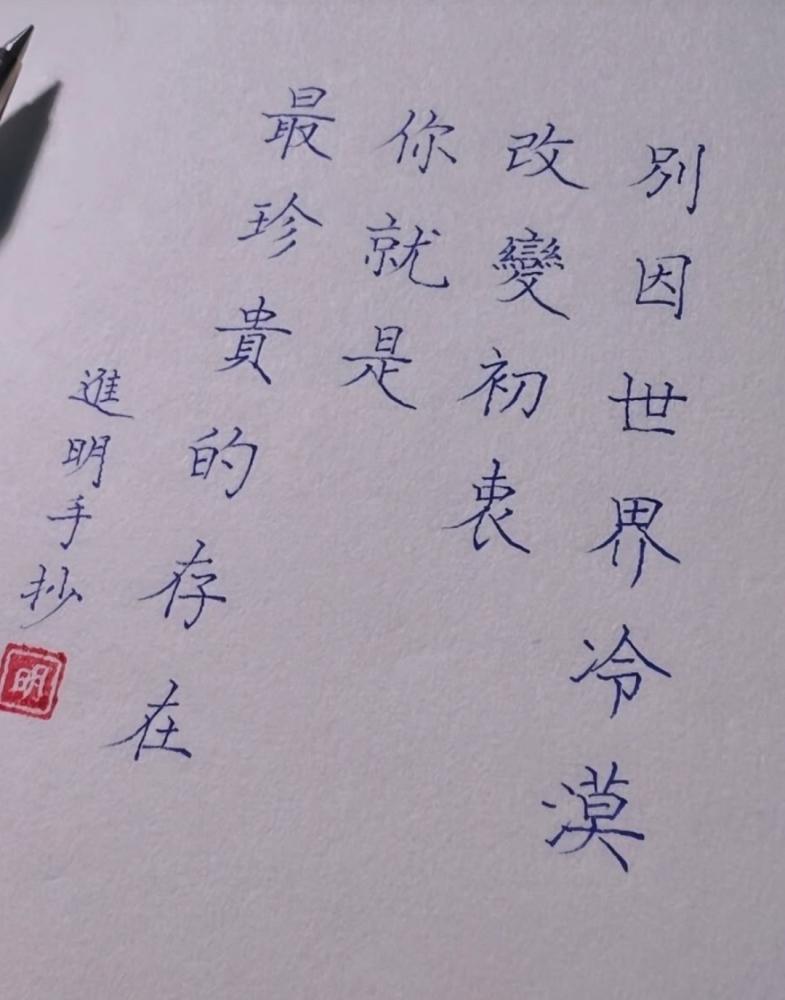 別因世界冷漠
改變初衷
你就是
最珍貴的存在
進明手抄
明